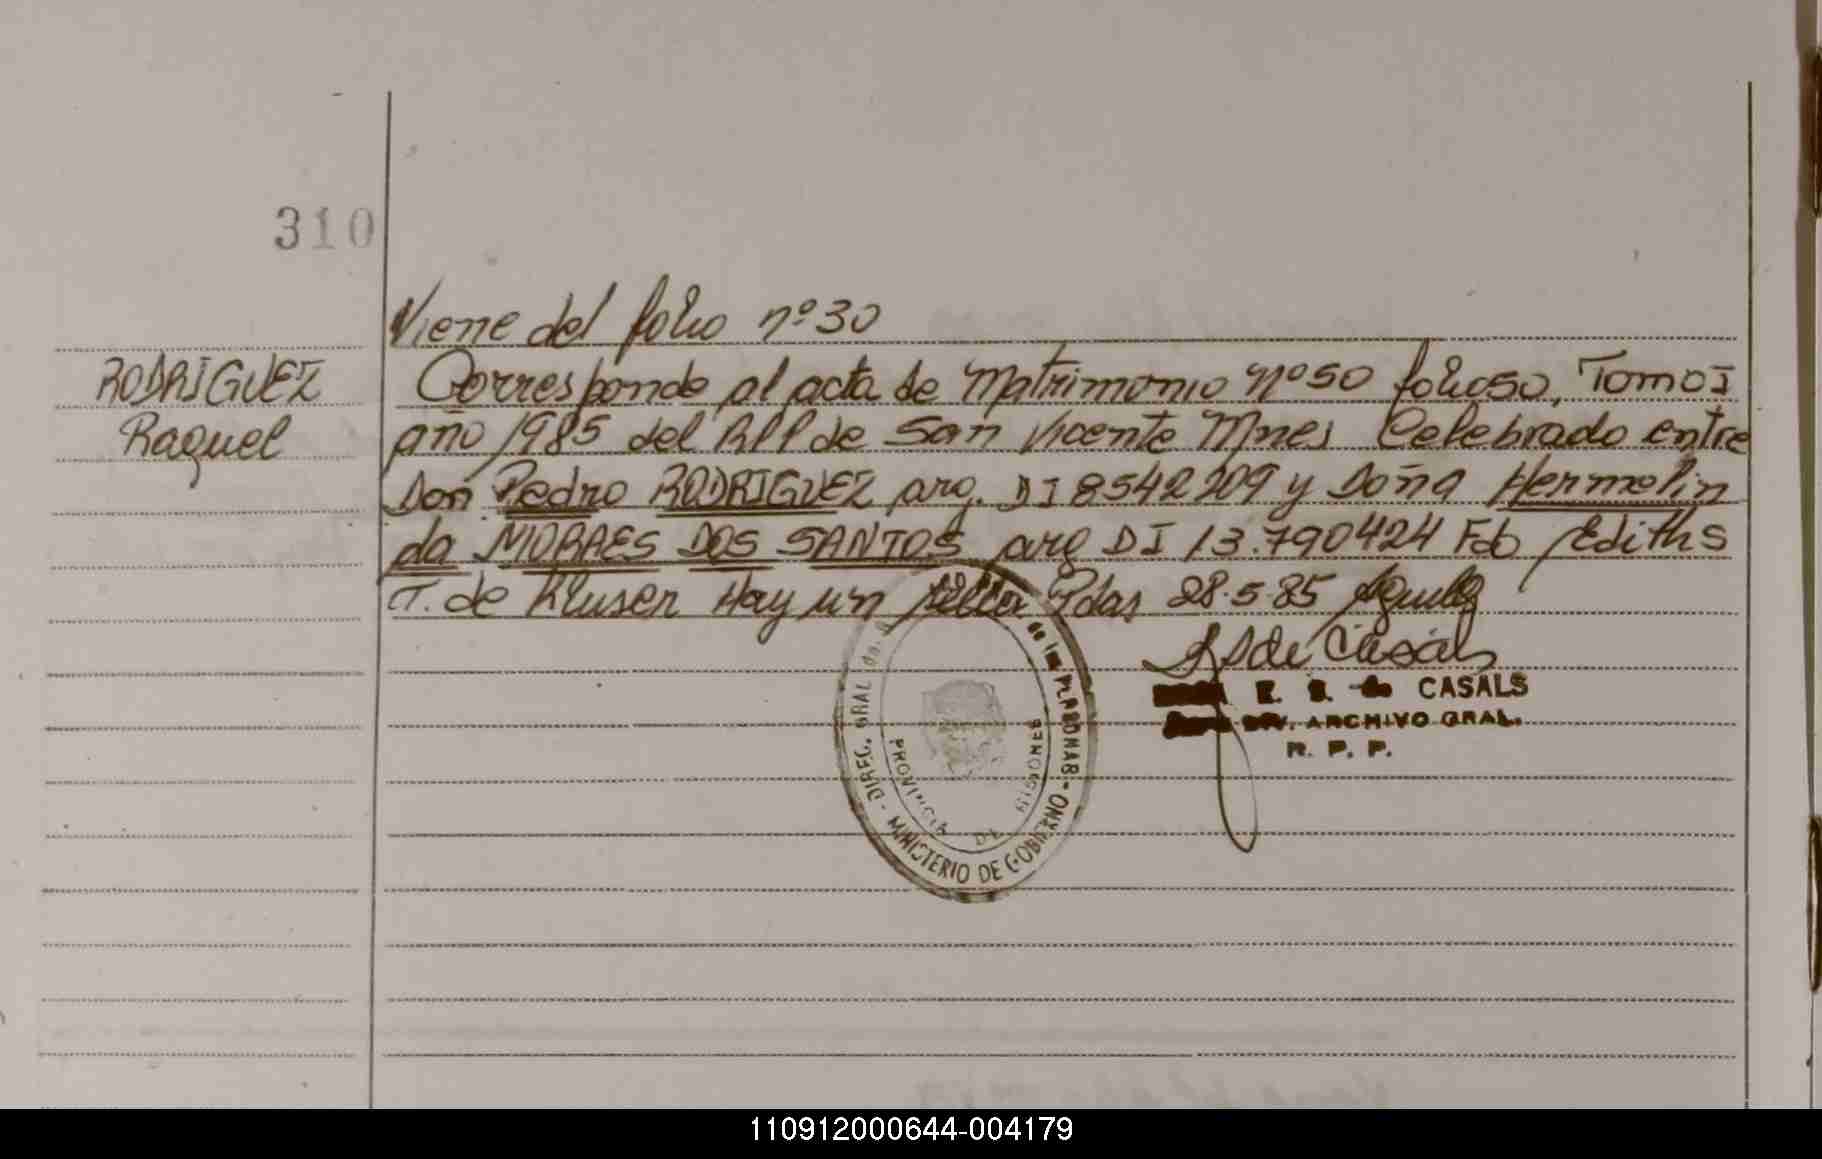 310
Viene del folio nº 30
RODRIGUEZ
Raquel
Corresponde al acta de Matrimonio Nº 50 folio 50, Tomo I
año 1985 del RPP de San Vicente Mnes Celebrado entre
Don Pedro RODRIGUEZ arg. DI 8542209 y Doña Hermelin
da MORAES DOS SANTOS arg DI 13.790424 Fdo Ediths
T. de Kluser Hay un sello Pdas 28.5.85
de Casals
E. de CASALS
DIV. ARCHIVO GRAL.
R. P. P.
DIREC. GRAL de las PERSONAS - MINISTERIO DE GOBIERNO -
PROVINCIA DE MISIONES
110912000644-004179